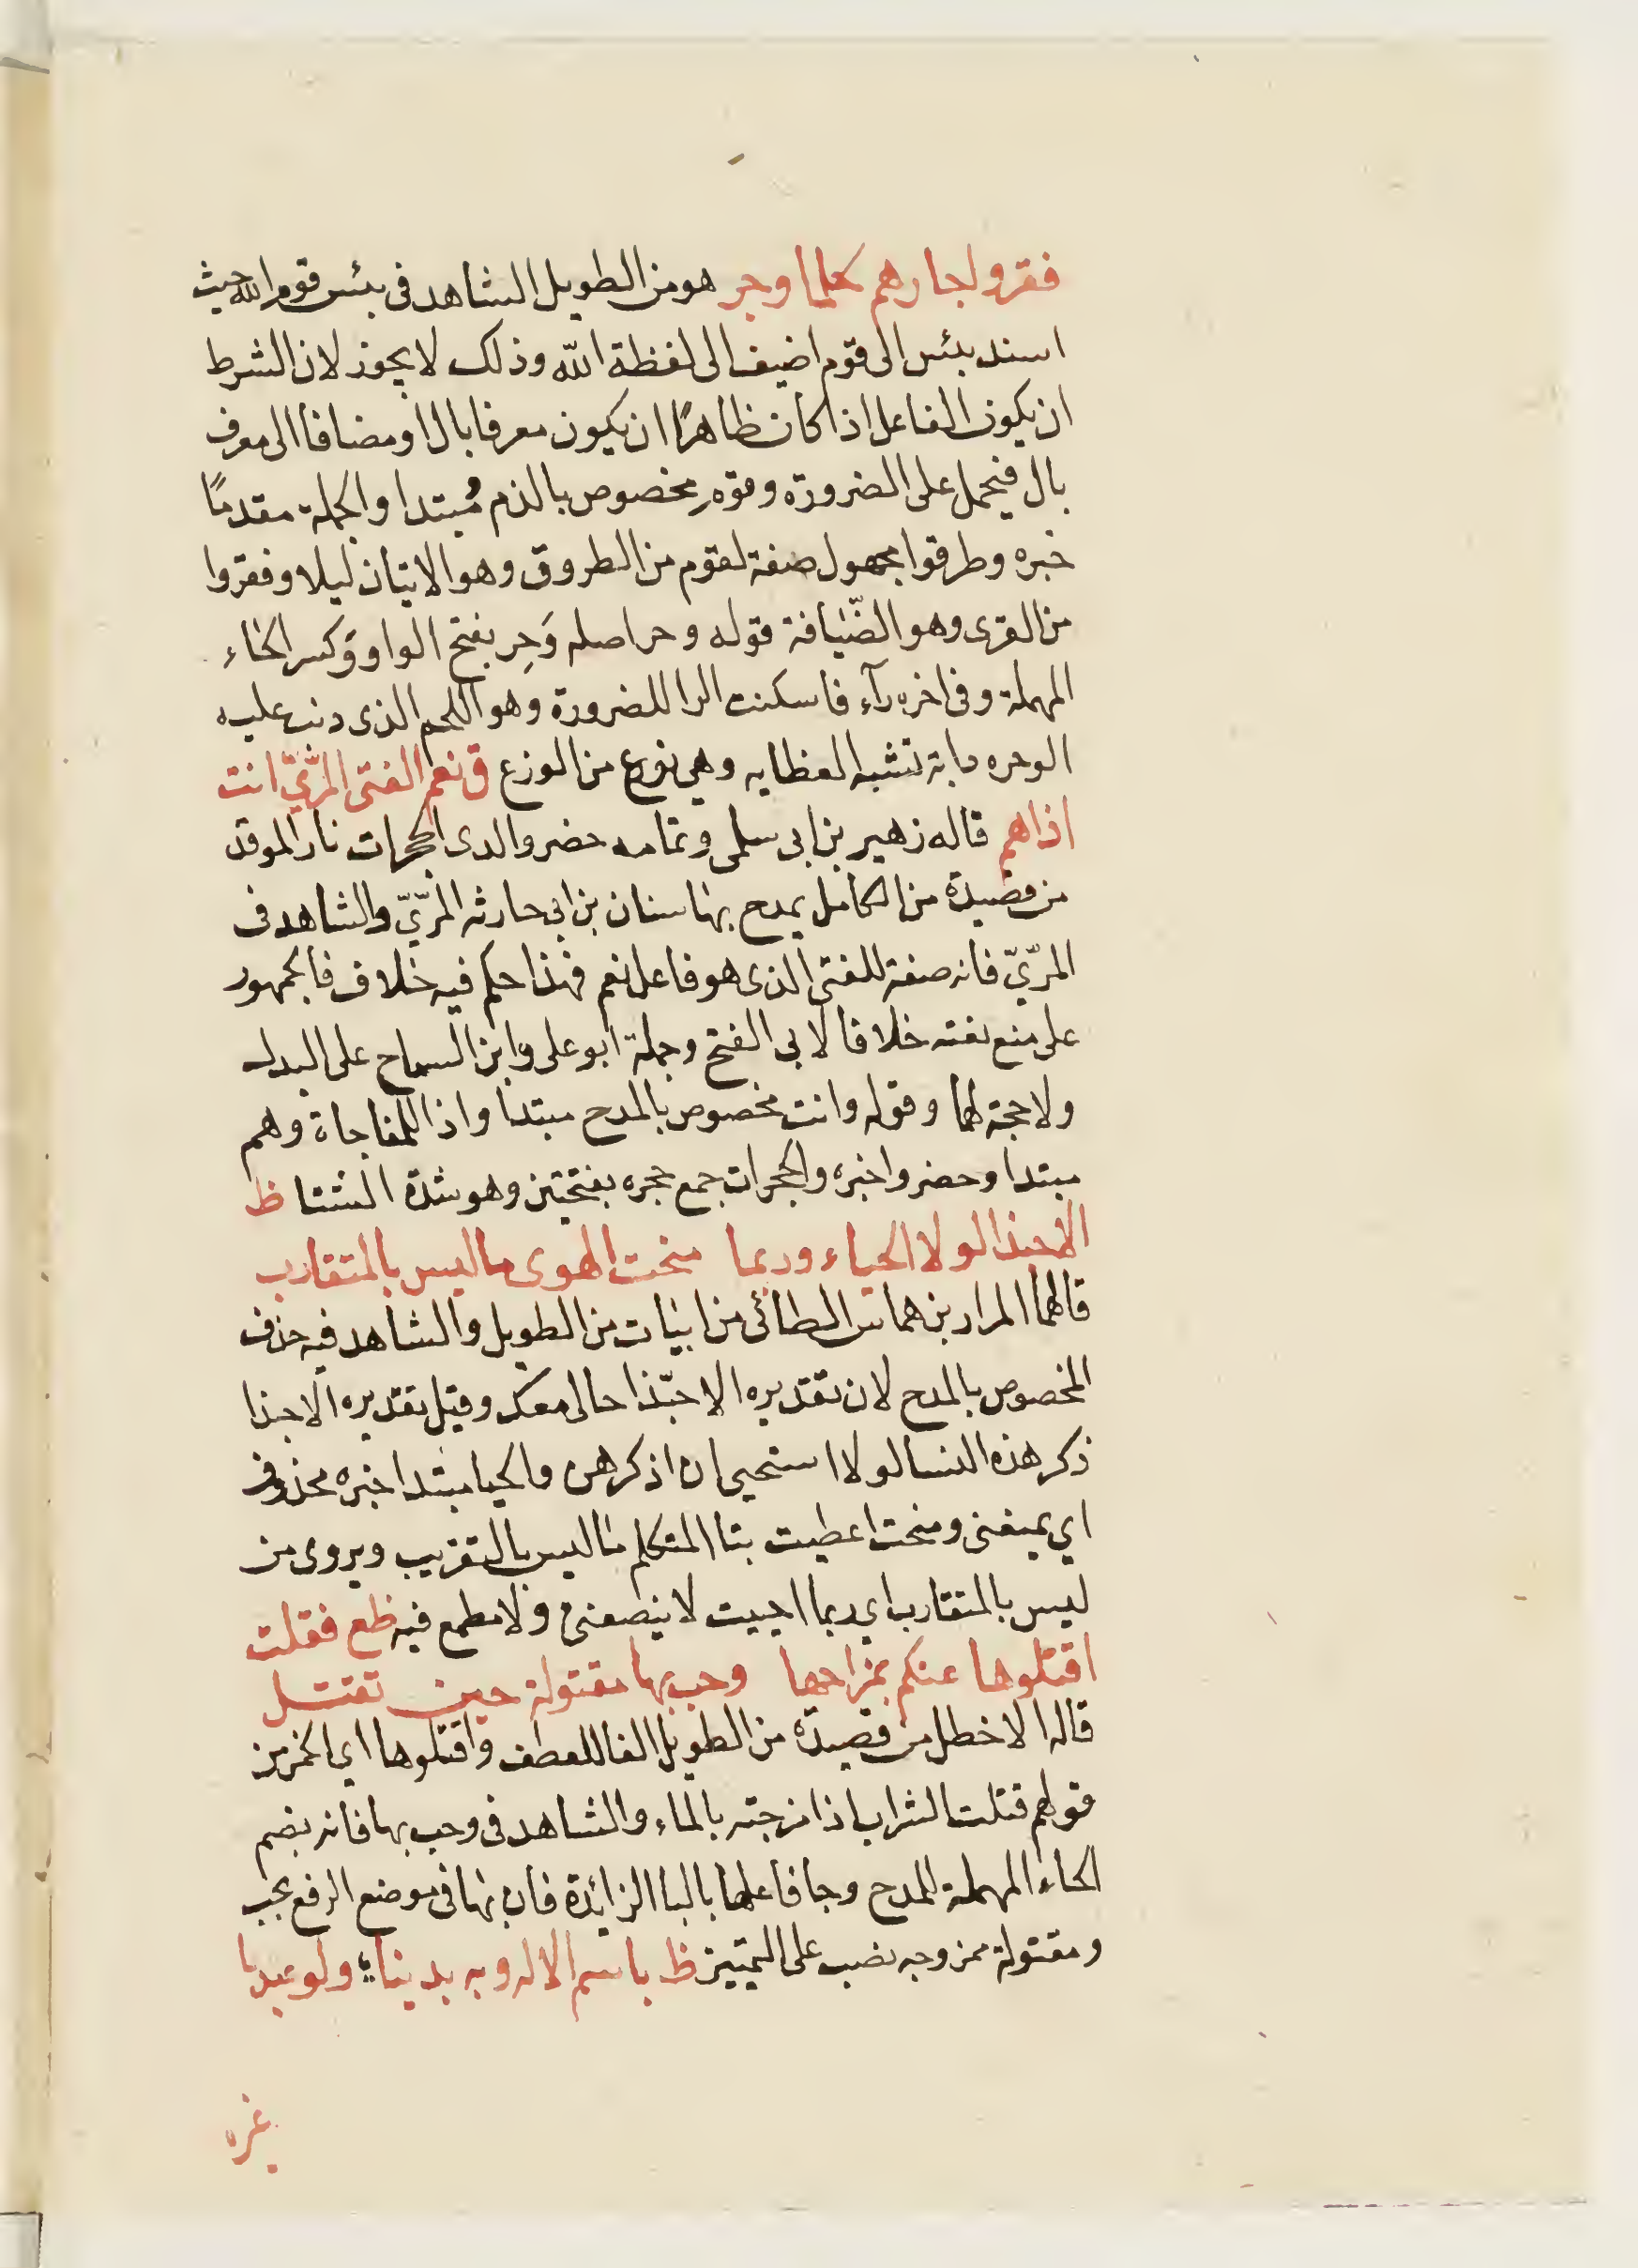 فقروا جارهم لحما وحر هو من الطويل الشاهد فى بئس قوم الله حيث
اسند بئس الى قوم اضيف الى لفظة الله وذلك لا يجوز لان الشرط
ان يكون الفاعل اذا كان ظاهرًا ان يكون معرفا بال او مضافا الى معرف
بال فيحمل على الضرورة وقوم مخصوص بالذم مُبتدا والجملة مقدمًا
خبره وطرقوا مجهول صفة لقوم من الطروق وهو الاتيان ليلا وفقروا
من القرى وهو الضّيافة قوله وحر اصله وَحِر بفتح الواو وَكسر الحاء
المهملة وفى اخره رآء فاسكنت الرا للضرورة وهو اللحم الذى دبت عليه
الوحره دابة تشبه العظايه وهى نوع من الوزع ق نعم الفتى المرّيّ انت
اذا هم قاله زهير بن ابى سلمى وتمامه حضروا لدى الحجرات نار الموقد
من قصيدة من الكامل يمدح بها سنان بن ابى حارثه المرّيّ والشاهد فى
المرّيّ فانه صفة للفتى الذى هو فاعل نعم فهذا حكم فيه خلاف فالجمهور
على منع نعته خلافا لابى الفتح وجملة ابو على وابن السراج على البدل
ولا حجة لهما وقوله وانت مخصوص بالمدح مبتدا واذا للمفاجاة وهم
مبتدا وحضروا خبره والحجرات جمع حجره بفتحتين وهو شدة الشتا ظ
الا حبذا لولا الحياء وربما منحت الهوى ما ليس بالمتقارب
قالهما المرار بن هماس الطائى من ابيات من الطويل والشاهد فيه حذف
المخصوص بالمدح لان تقديره الا حبّذا حالى معك وقيل تقديره الا حبذا
ذكر هذه النسا لولا استحيى ان اذكرهن والحيا مبتدا خبره محذوف
اي يمنعنى ومنحت اعطيت بتا المتكلم ما ليس بالتقريب ويروى من
ليس بالمتقارب اي ربما احببت لا ينصفنى ولا مطمع فيه ظع فقلت
اقتلوها عنكم بمزاجها وحب بها مقتولة حين تقتل
قاله الاخطل من قصيدة من الطويل الفا للعطف واقتلوها اي الخمر من
قولهم قتلت الشراب اذا مزجته بالماء والشاهد فى وحب بها فانه بضم
الحاء المهملة للمدح وجا فاعلها بالبا الزائدة فان بها فى موضع الرفع بحب
ومقتولة ممزوجه نصب على التمييز ظ باسم الاله وبه بدينا ولو عبدنا
غيره